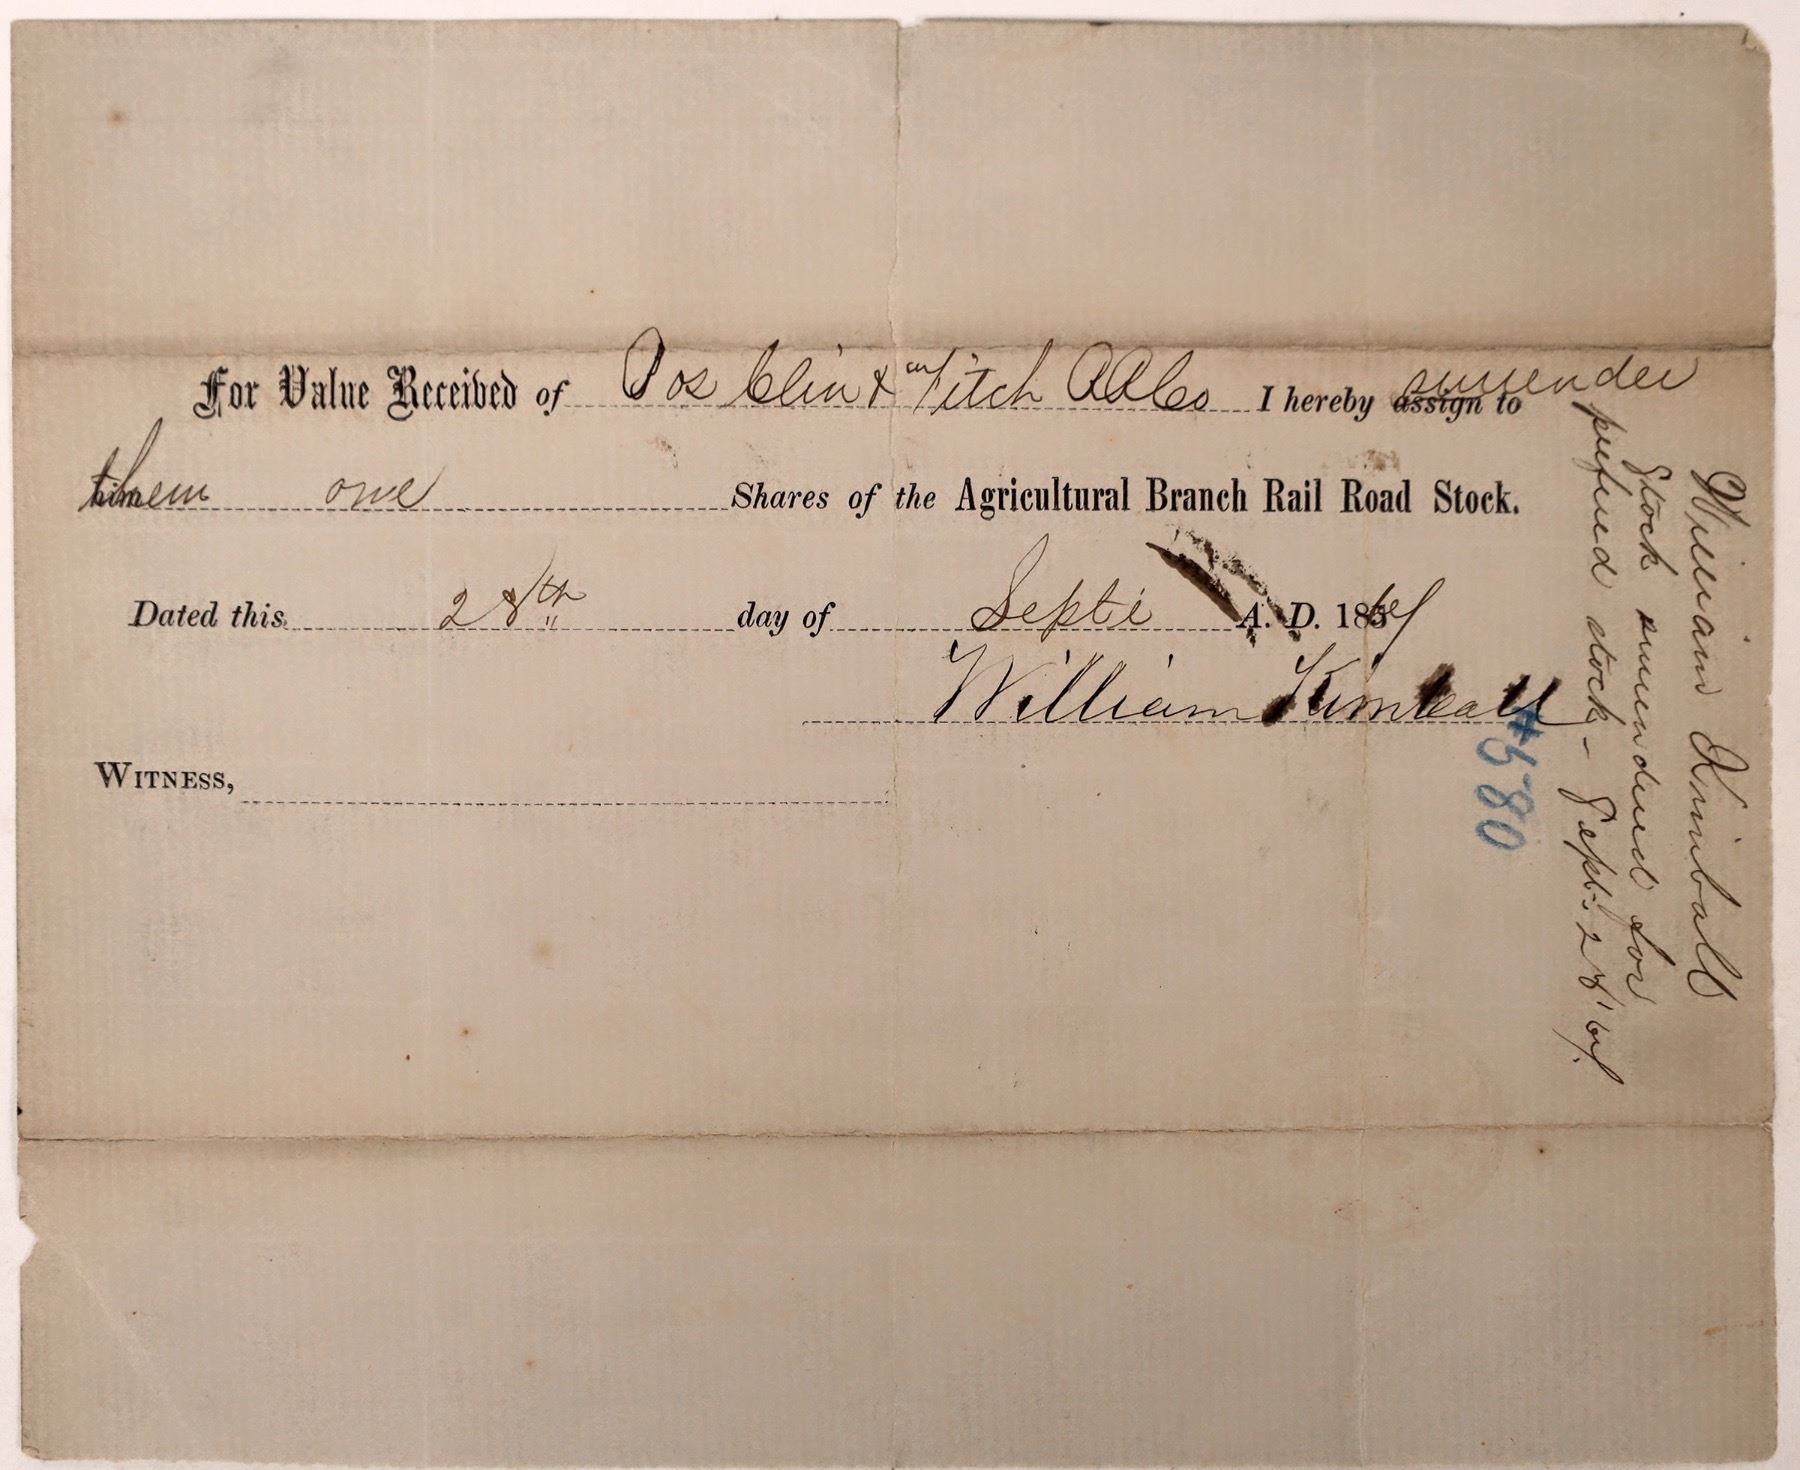 For Value Received of Bos Clin & Fitch RRCo I hereby surrender assign to
them one Shares of the Agricultural Branch Rail Road Stock.
Dated this 28th day of Sept A. D. 1869
William Kimball
WITNESS,
William Kimball
Stock surrendered for
prefered stock - Sept. 28' 69.